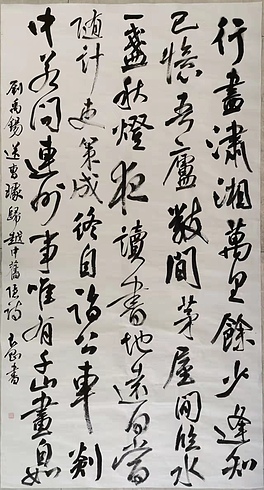 行盡瀟湘萬里餘少逢知
己憶吾廬數間茅屋閒臨水
一盞秋燈夜讀書地遠何當
隨計吏策成終自詣公車剡
中若問連州事唯有千山畫不如
劉禹錫送曹璩歸越中舊隱詩書